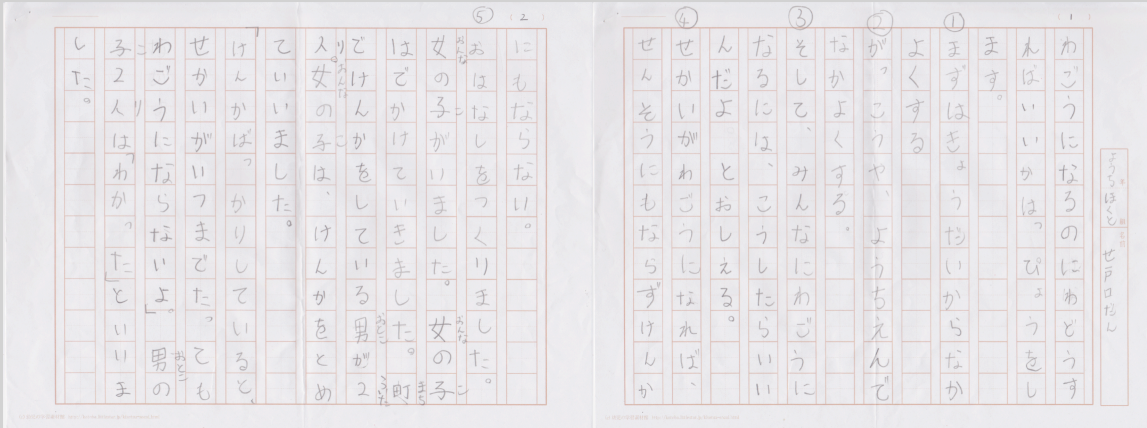 (1)
わごうになるのにわどうす
ればいいかはっぴょうをし
ます。
① まずはきょうだいからなか
よくする
② がっこうや、ようちえんで
なかよくする。
③ そして、みんなにわごうに
なるには、こうしたらいい
んだよ とおしえる。
④ せかいがわごうになれば、
せんそうにもならずけんか
(2)
にもならない。
⑤ おはなしをつくりました。
女の子がいました。女の子
はでかけていきました。町、
でけんかをしている男が2
人り。女の子は、けんかをとめ
ていいました。
「けんかばっかりしていると、
せかいがいつまでたっても
わごうにならないよ。」男の
子2人は「わかった」といいま
した。